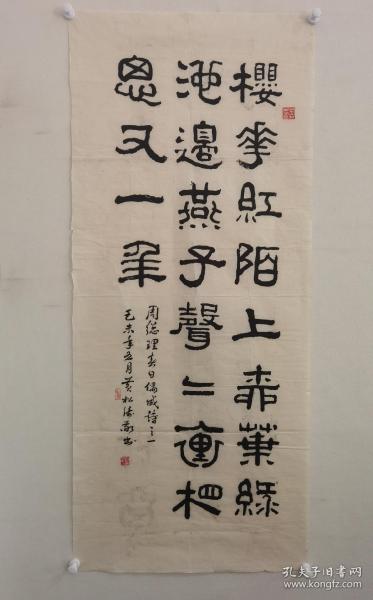 櫻花紅陌上柳葉綠
池邊燕子聲々裏相
思又一年
周總理春日偶成詩之一
己未年五月黃松濤敬书
孔夫子旧书网
www.kongfz.com